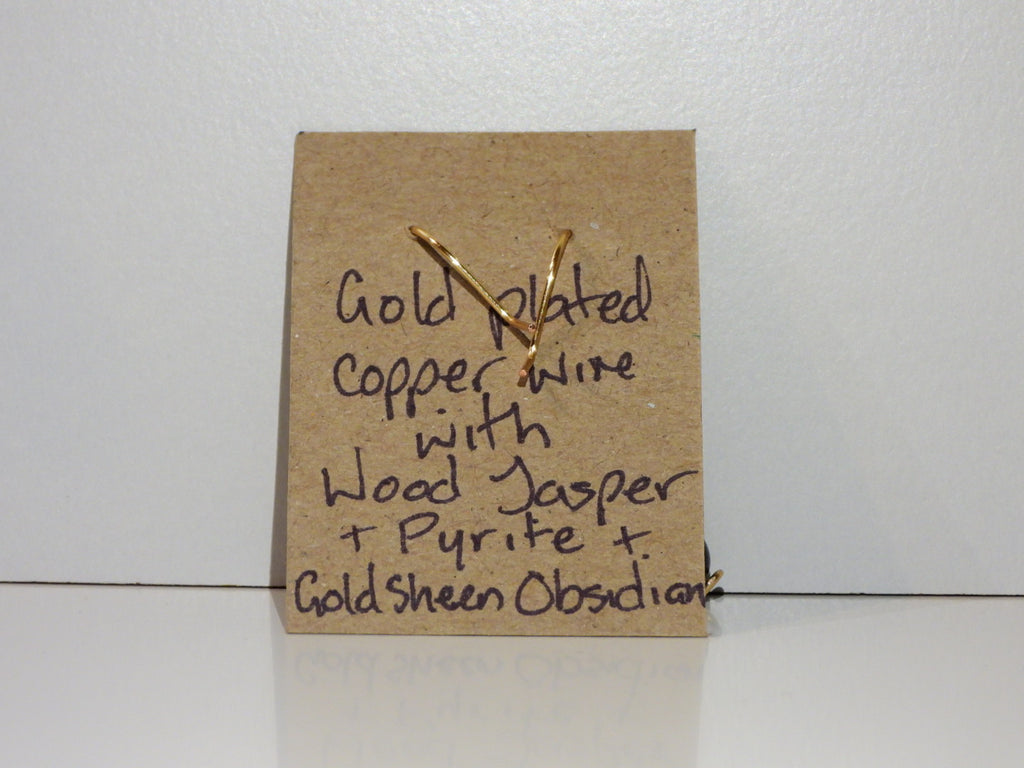 Gold plated
Copper wire
with
Wood Jasper
+ Pyrite +
Gold Sheen Obsidian